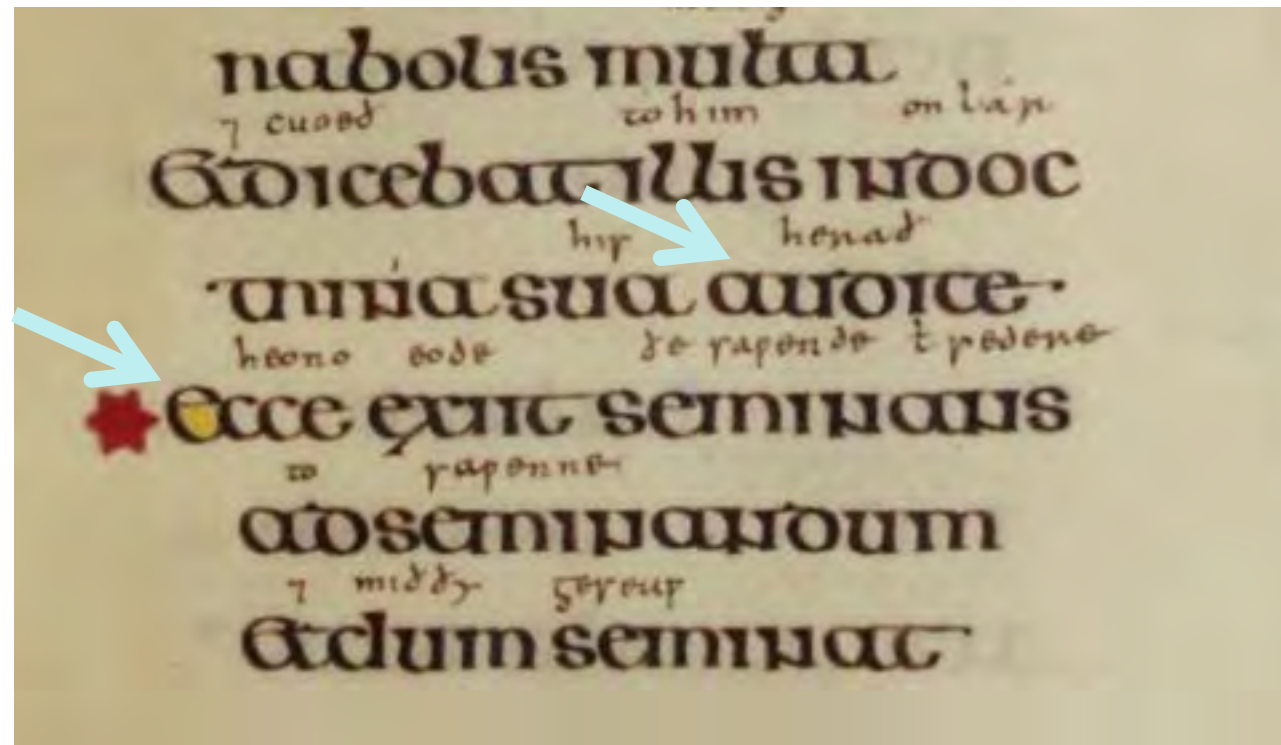 rabolis multa
⁊ cuoeð to him on lár
Et dicebat illis in doc
his herað
trina sua audite
heono eode ðe saƿende ł sedere
Ecce exiit seminans
to saƿenne
ad seminandum
⁊ middy geseuƿ
Et dum seminat